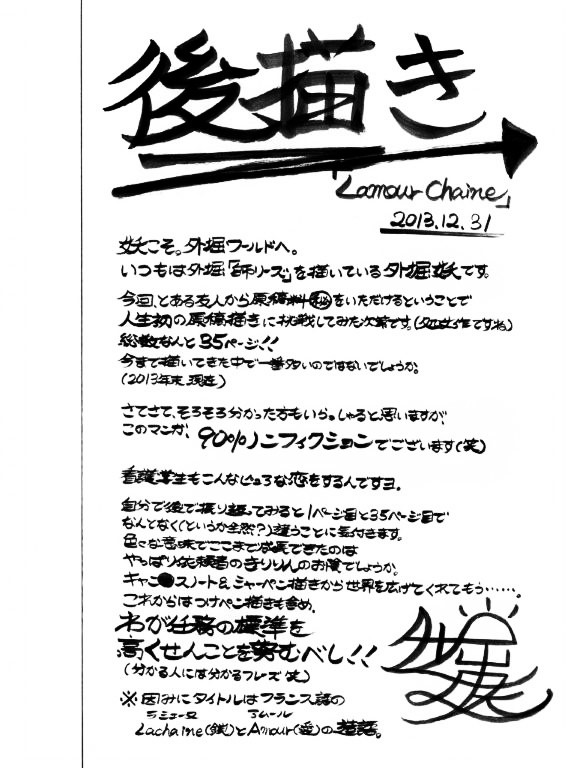 後描き
「Lamour Chaine」
2013.12.31
妖こそ。外堀ワールドへ。
いつもは外堀「師リーズ」を描いている外堀妖です。
今回、とある友人から原稿料㊙をいただけるということで
人生初の原稿描きに挑戦してみた次第です。(処女作ですね)
総数なんと35ページ!!
今まで描いてきた中で一番多いのではないでしょうか。
(2013年末 現在)
さてさて、そろそろ分かった方もいらっしゃると思いますが、
このマンガ、90%ノンフィクションでございます(笑)
看護学生もこんなピュアな恋をするんですヨ。
自分で後で振り返ってみると1ページ目と35ページ目で
なんとなく(というか全然?)違うことに気付きます。
色々な意味でここまで成長できたのは
やっぱり依頼者のきりりんのお陰でしょうか。
キャンパスノート&シャーペン描きから世界を広げてくれてもう……。
これからはつけペン描きも含め、
わが任務の標準を
高くせんことを努むべし!!
(分かる人には分かるフレーズ 笑)
※因みにタイトルはフランス語の
ラシェーヌ アムール
Lachaine(鎖)とAmour(愛)の造語。
外堀妖